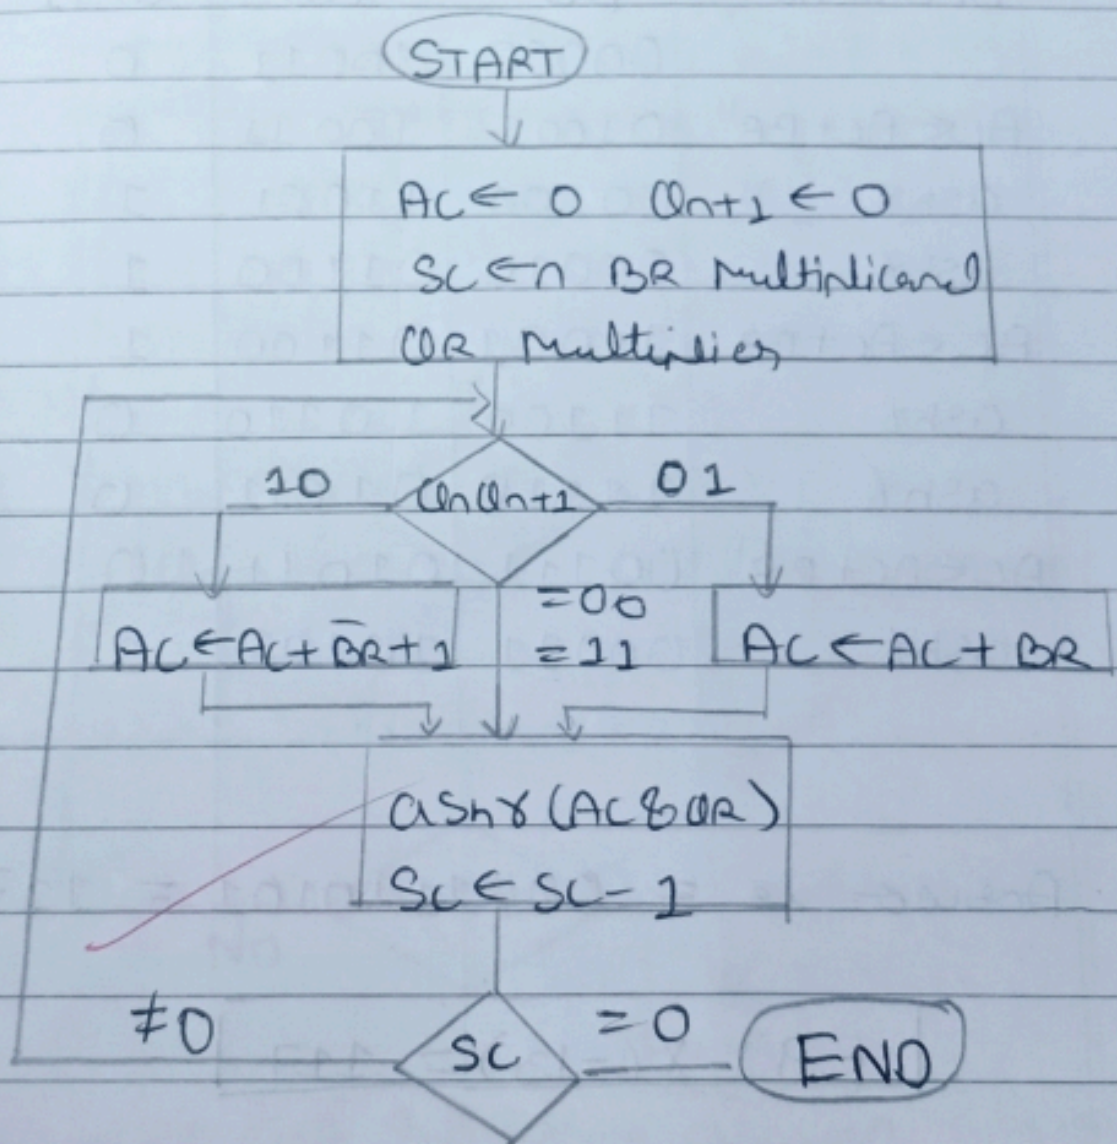 START
AC ← 0 Qn+1 ← 0
SC ← n BR Multiplicand
QR Multiplier
10
QnQn+1
01
=00
=11
AC ← AC + B̅R + 1
AC ← AC + BR
ashr (AC & QR)
SC ← SC - 1
≠0
SC
= 0
END